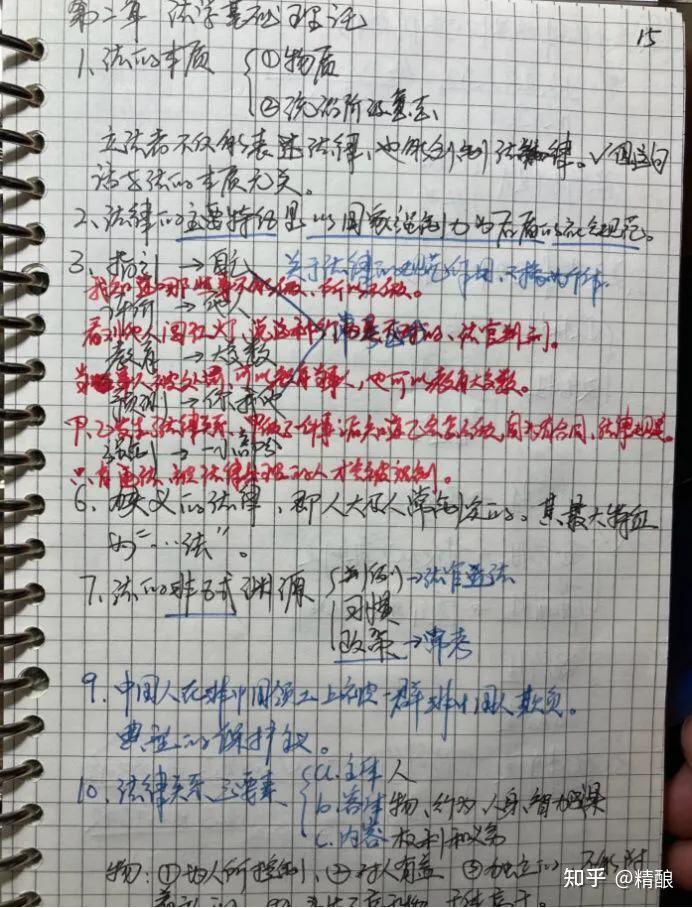 第二章 法学基础理论
15
1、法的本质 ①物质
②统治阶级意志
立法者不仅能表述法律、也能创制法律。✓但这句
话与法的本质无关。
2、法律的主要特征是以国家强制力为后盾的社会规范。
3、指引 → 自己 关于法律的规范作用、
我知道哪些事不能做、所以不做。
评价 → 他人
看到他人闯红灯、说这种行为是不对的、法官判刑。
教育 → 大多数
当事人被处罚、可以教育本人、也可以教育大多数。
预测 → 你我他
甲、乙发生法律关系、甲做了一件事后知道乙会怎么做、因为有合同、法律规定。
强制 → 一小部分
只有违法、被法律制裁的人才会被强制。
6、狭义的法律、即人大及人常制定的。其最大特征
为“…法”。
7、法的非正式渊源 判例 → 法官造法
习惯
政策 → 常考
9、中国人在非中国领土上被一群非中国人欺负。
典型的保护主义。
10、法律关系三要素 a.主体 人
b.客体 物、行为、人身、智力成果
c.内容 权利和义务
物：①为人所控制、②对人有益 ③独立的 不能附
知乎 @精酿